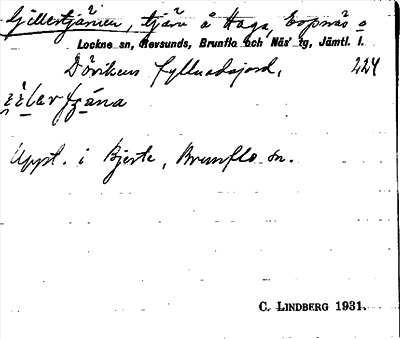 Gillertjärnen, tjärn å Haga, Lopnäs o
Lockne sn, Revsunds, Brunflo och Näs' tg, Jämtl. l.
Dövikens fyllnadsjord, 224
Uppt. i Bjerte, Brunflo sn.
C. LINDBERG 1931.